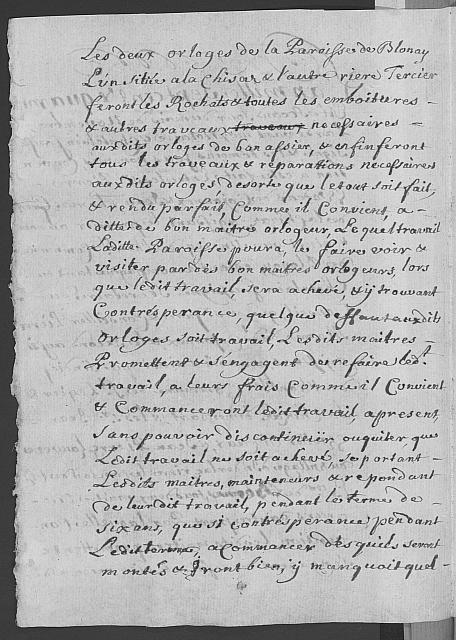 Les deux orloges de la Paroisse de Blonay
L'ún sitúé a la Chisaz & l'autre riere Tercier
feront les Rochats & toutes les emboitures –
& autres travcaux traveaux necessaires –
auxdits orloges de bon assier, & enfin feront
tous les traveaux & réparations necessaires
auxdits orloges desorte que le tout soit fait,
& rendu parfait, Comme il Convient, a –
ditte de bon maitre orlogeur, Lequel travail
Laditte Paroisse poura, le faire voir &
visiter par dès bon maitres orlogeurs, lors
que ledit travail, sera achevé, & ij trouvant
Contrésperance, quelque deffaut auxdits
orloges soit travail, Lesdits maitres –
Promettent & s'engagent de refaire led.t
travail, a leurs frais Comme il Convient
& Commanceront ledit travail, a présent,
sans pouvoir discontinúer ou quiter que
Ledit travail ne soit achevé se portant –
Lesdits maitres, mainteneurs & repondant
de leur dit travail, pendant le terme de –
six ans, que si contrésperance pendant
Ledit terme, a commancer dès qu'ils seront
montés & iront bien, ij manquoit quel-